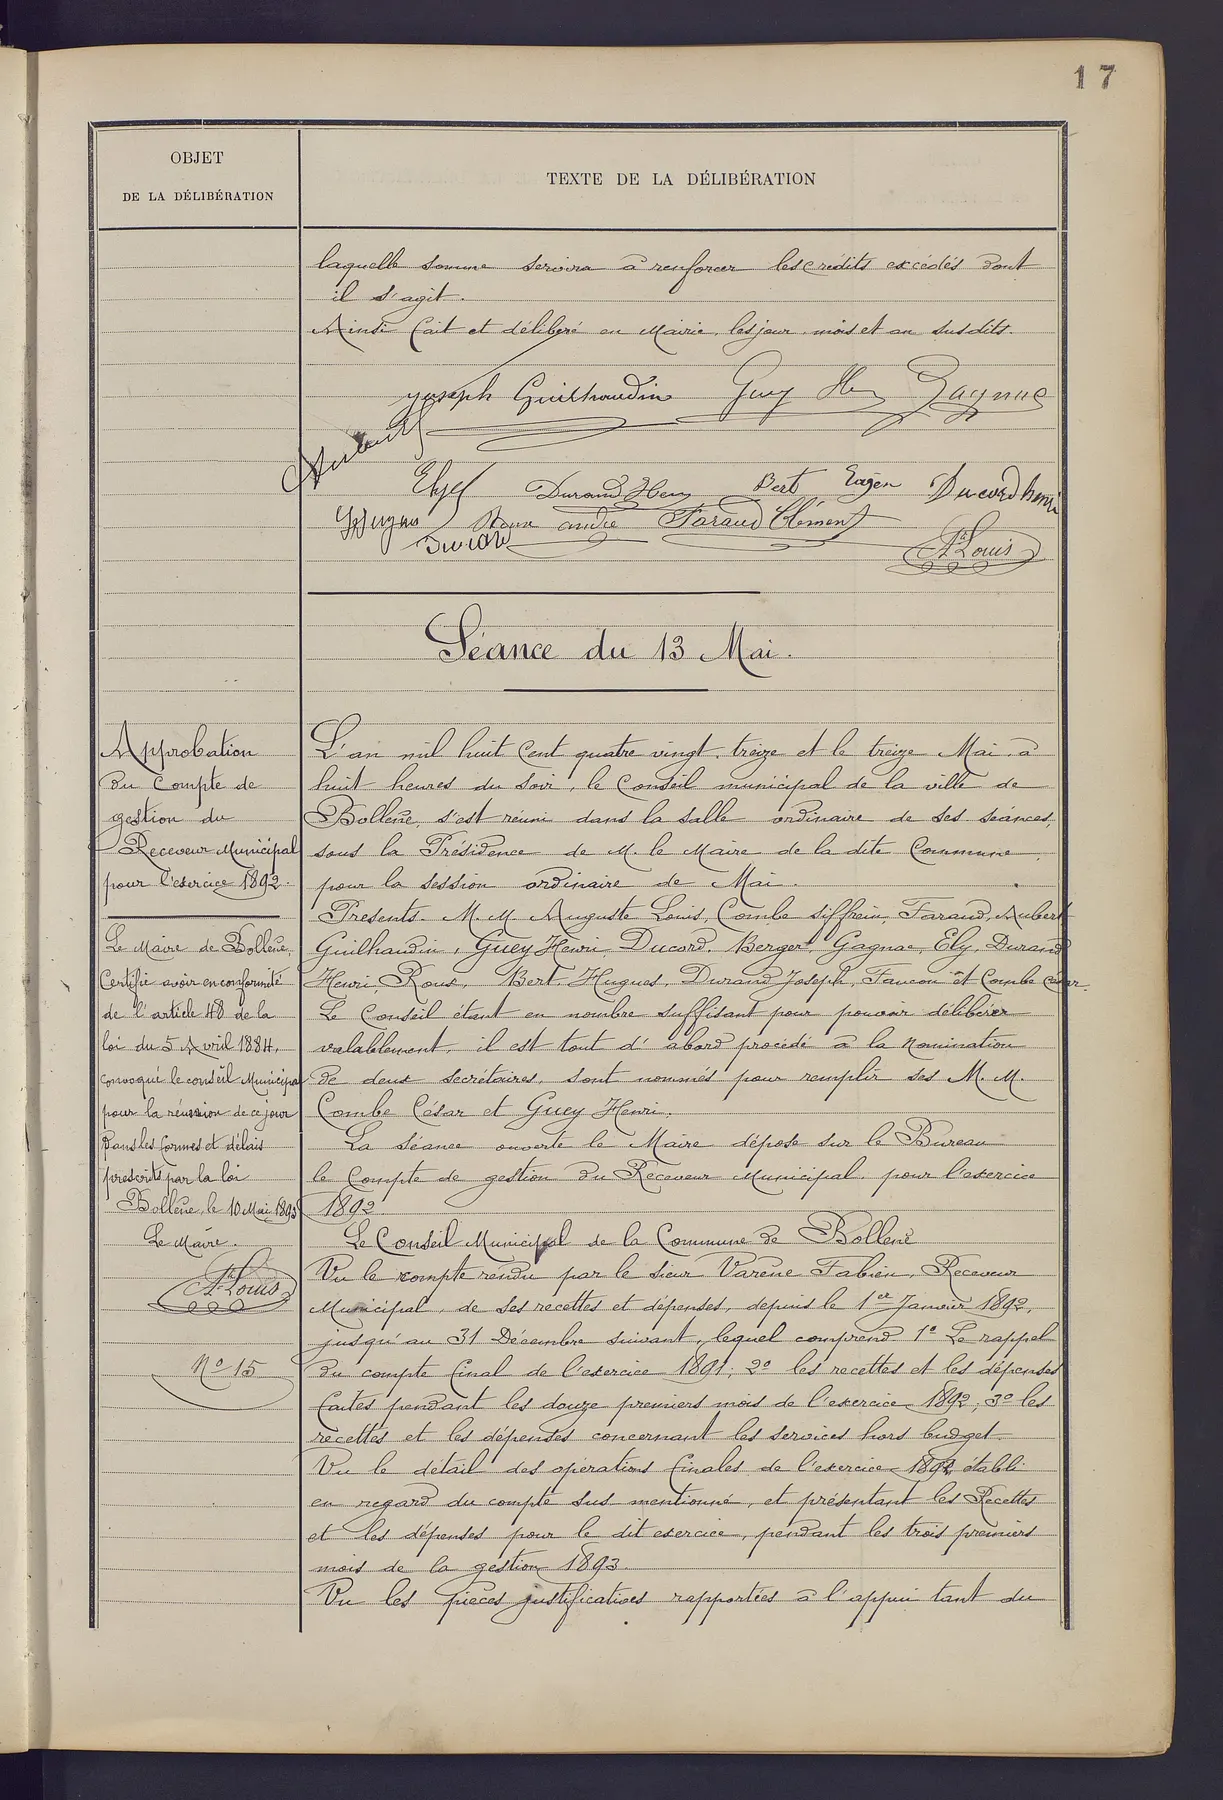 17
OBJET
DE LA DÉLIBÉRATION
TEXTE DE LA DÉLIBÉRATION
laquelle somme servira à renforcer les crédits excédés dont
il s'agit.
Ainsi fait et délibéré en Mairie, les jour, mois et an susdits.
Joseph Guilhaudin Guey Hri Gagnac
Aubert
Ely Durand Henri Bert Eugén Ducord henri
Hugues Roux andré Faraud Clément
A.te Louis
Séance du 13 Mai.
Approbation
du Compte de
gestion du
Receveur Municipal
pour l'exercice 1892.
Le Maire de Bollène,
Certifie avoir en conformité
de l'article 48 de la
loi du 5 Avril 1884,
convoqué le conseil Municipal
pour la réunion de ce jour
dans les formes et délais
prescrits par la loi
Bollène, le 10 Mai 1893
Le Maire.
A.te Louis
No 15
L'an mil huit Cent quatre vingt treize et le treize Mai, à
huit heures du soir, le Conseil municipal de la ville de
Bollène, s'est réuni dans la salle ordinaire de ses séances,
sous la Présidence de M. le Maire de la dite Commune,
pour la session ordinaire de Mai.
Présents. M. M. Auguste Louis, Combe Siffrein, Faraud, Aubert
Guilhaudin, Guey Henri, Ducord, Berger, Gagnac, Ely, Durand
Henri, Roux, Bert, Hugues, Durand Joseph, Faucon et Combe César.
Le Conseil étant en nombre suffisant pour pouvoir délibérer
valablement, il est tout d'abord procédé à la Nomination
de deux secrétaires, sont nommés pour remplir ses M. M.
Combe César et Guey Henri.
La séance ouverte le Maire dépose sur le Bureau
le Compte de gestion du Receveur Municipal, pour l'exercice
1892.
Le Conseil Municipal de la Commune de Bollène
Vu le compte rendu par le sieur Varène Fabien, Receveur
Municipal, de ses recettes et dépenses, depuis le 1er Janvier 1892,
jusqu'au 31 Décembre suivant, lequel comprend 1o Le rappel
du compte final de l'exercice 1891; 2o les recettes et les dépenses
faites pendant les douze premiers mois de l'exercice 1892; 3o les
recettes et les dépenses concernant les services hors budget.
Vu le détail des opérations finales de l'exercice 1892 établi
en regard du compte sus mentionné, et présentant les Recettes
et les dépenses pour le dit exercice, pendant les trois premiers
mois de la gestion 1893.
Vu les pièces justificatives rapportées à l'appui tant du